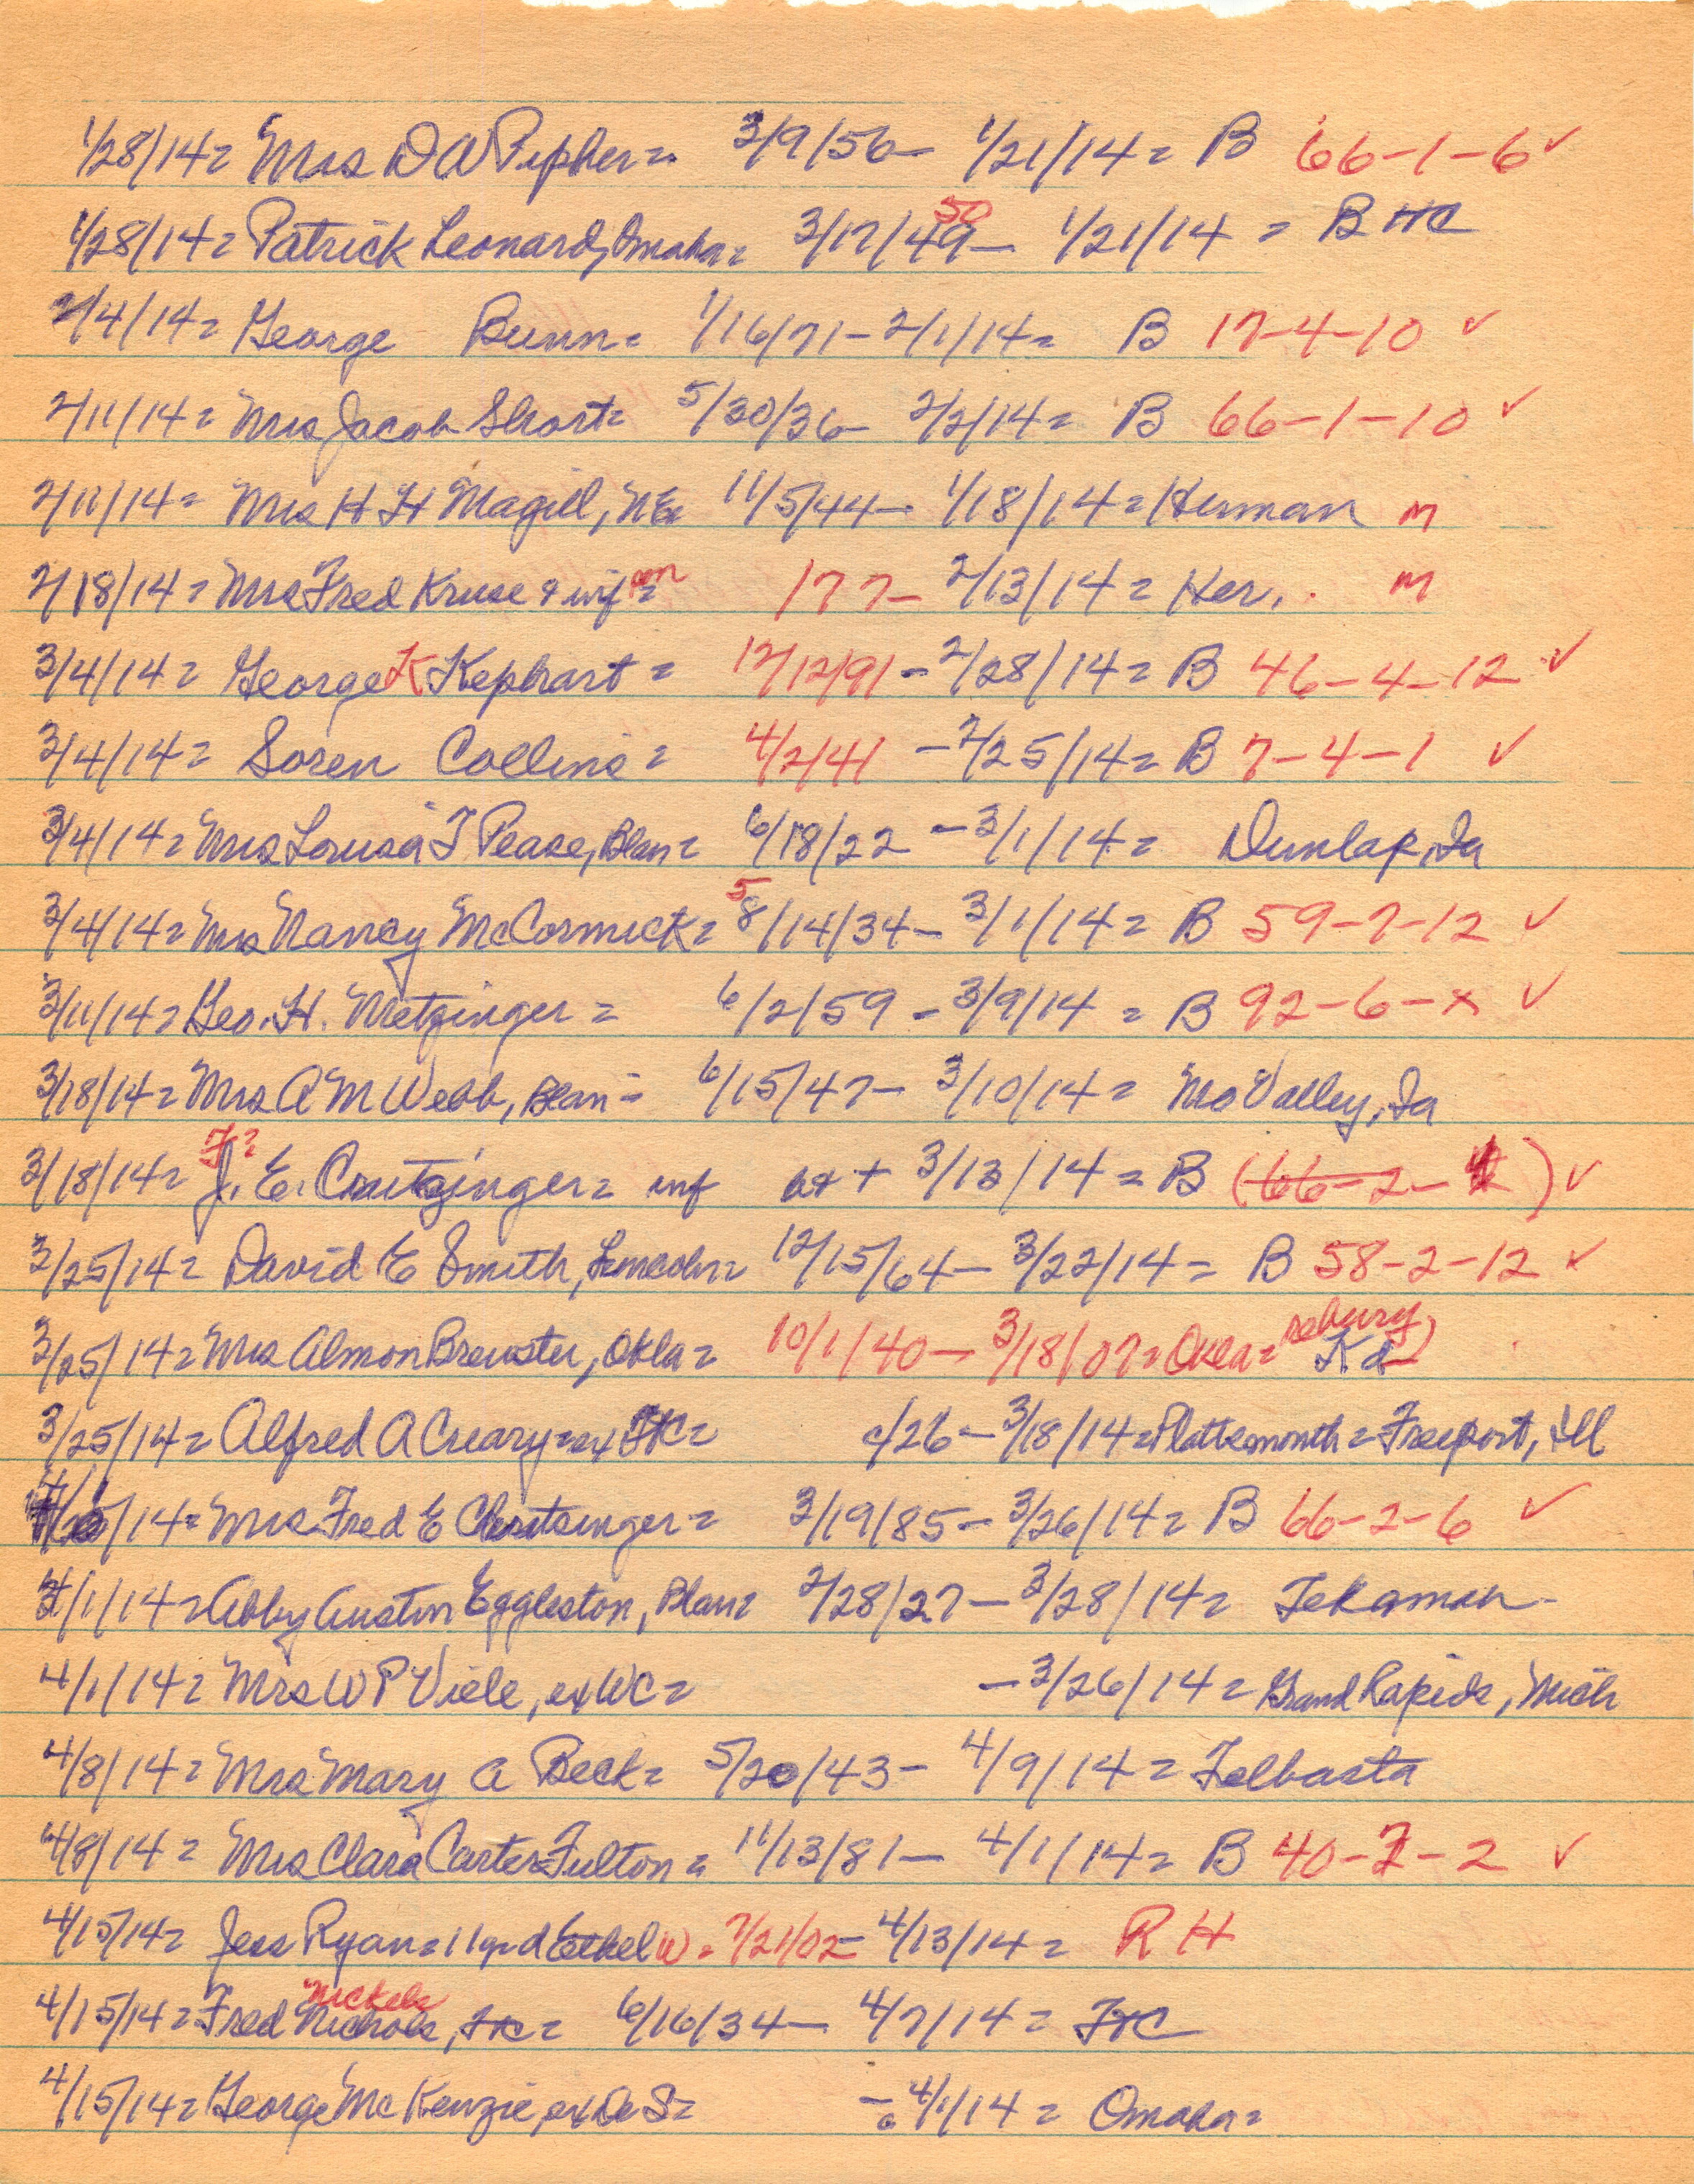 1/28/14= Mrs D A Pepher= 3/9/56- 1/21/14= B 66-1-6 ✓
50
1/28/14= Patrick Leonard, Omaha= 3/17/49- 1/21/14 = B
2/4/14= George Bunn= 1/16/71- 2/1/14= B 17-4-10 ✓
2/11/14= Mrs Jacob Short= 5/30/36- 2/2/14= B 66-1-10 ✓
2/11/14= Mrs H H Magill, NE= 11/5/44- 1/18/14= Herman m
son
2/18/14= Mrs Fred Kruse & inf= 1??- 2/13/14= Her. m
3/4/14= George K Kephart= 12/12/91- 2/28/14= B 46-4-12 ✓
3/4/14= Soren Collins= 4/2/41 -2/25/14= B 7-4-1 ✓
3/4/14= Mrs Louisa T Pease, Blan= 6/18/22 -3/1/14= Dunlap, Ia
5
3/4/14= Mrs Nancy McCormick= 8/14/34- 3/1/14= B 59-7-12 ✓
3/11/14= Geo. H. Metzinger= 6/2/59 - 3/9/14 = B 92-6-x ✓
3/18/14= Mrs A M Webb, Blan= 6/15/47- 3/10/14= Mo Valley, Ia
F?
3/18/14= J. E. Crutzinger= inf bx + 3/13/14= B (66-2-4) ✓
3/25/14= David E Smith, Lincoln= 12/15/64- 3/22/14= B 58-2-12 ✓
sebury
3/25/14= Mrs Almon Brewster, Okla= 10/1/40- 3/18/07= Okla= Kd)
3/25/14= Alfred A Creary= ex FtC= c/26- 3/18/14= Plattsmouth= Freeport, Ill
/14= Mrs Fred E Cheritsinger= 3/19/85- 3/26/14= B 66-2-6 ✓
4/1/14= Abby Austin Eggleston, Blan= 2/28/27- 3/28/14= Tekamah-
4/1/14= Mrs W P Viele, ex WC= -3/26/14= Grand Rapids, Mich
4/8/14= Mrs Mary A Beck= 5/20/43- 4/9/14= Telbasta
4/8/14= Mrs Clara Carter Fulton= 11/13/81- 4/1/14= B 40-7-2 ✓
4/15/14= Jess Ryan= 11yr d Ethel W= 7/21/02- 4/13/14= R H
Nickels
4/15/14= Fred Nichols, FtC= 6/16/34- 4/7/14= FtC
4/15/14= George McKenzie, ex DeS= - 4/1/14= Omaha=